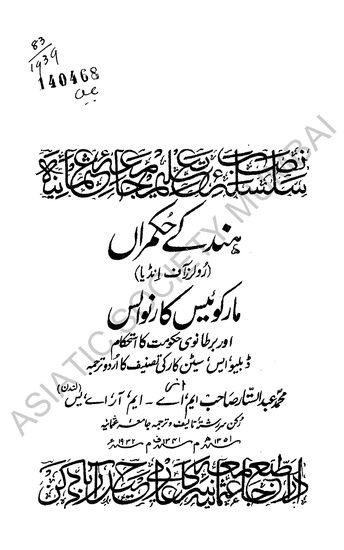 83
1939
140468
سلسلۂ نصاب تعلیم جامعہ عثمانیہ
ہند کے حکمراں
(رولرز آف انڈیا)
مارکوئیس کارنوالس
اور برطانوی حکومت کا استحکام
ڈبلیو ایس سیٹن کار کی تصنیف کا اردو ترجمہ
از
محمد عبدالستار صاحب ایم اے ۔ ایم آر اے یس (لندن)
رکن سررشتۂ تالیف و ترجمہ جامعہ عثمانیہ
۱۳۵۱ھ م ۱۳۴۱ف م ۱۹۳۲ء
دارالطبع جامعہ عثمانیہ سرکار عالی حیدرآباد دکن
ASIATIC SOCIETY MUMBAI